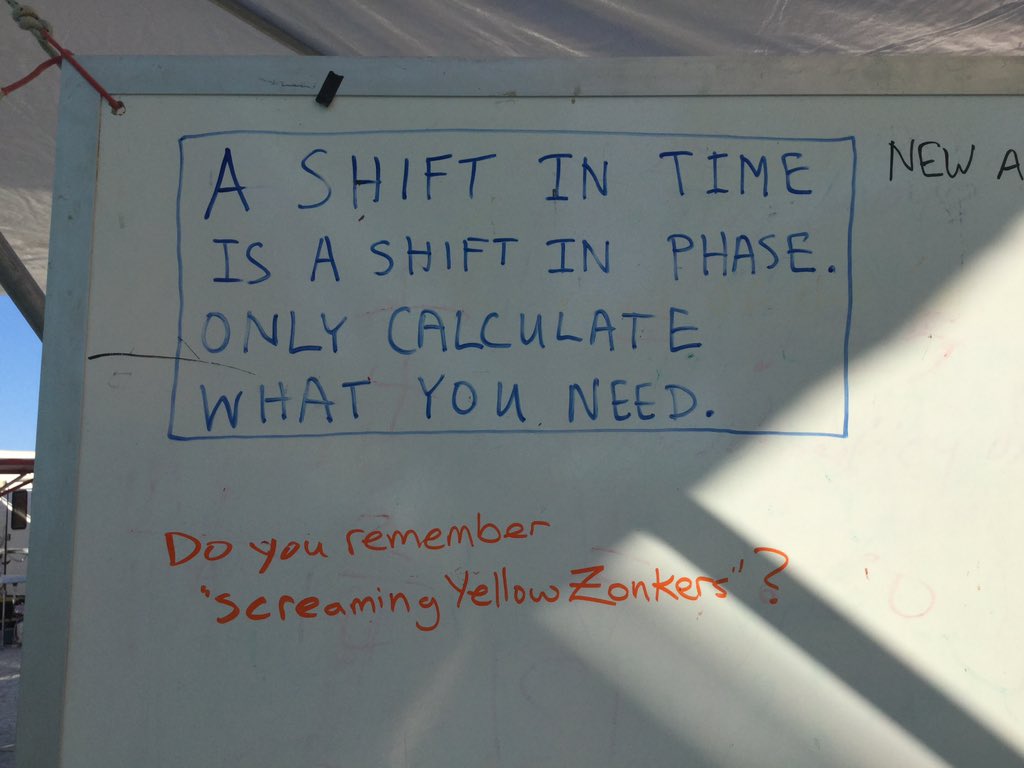 A SHIFT IN TIME
IS A SHIFT IN PHASE.
ONLY CALCULATE
WHAT YOU NEED.
NEW A
Do you remember
"screaming Yellow Zonkers"?